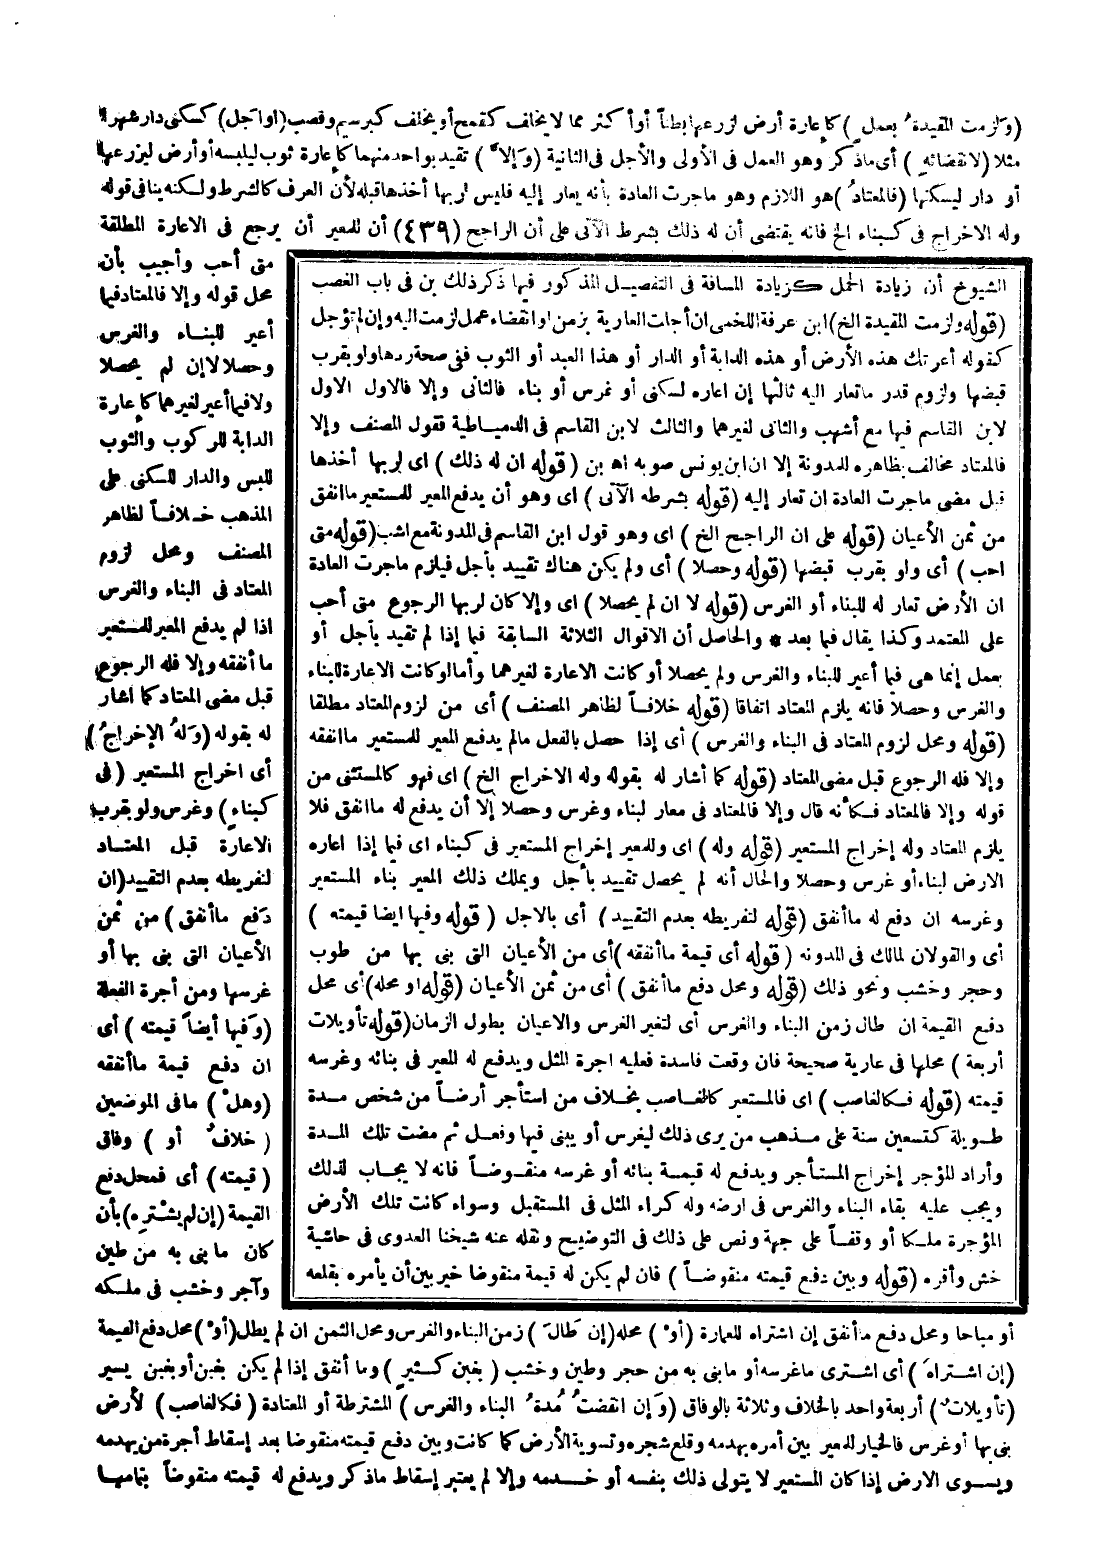 (وَلزمت المقيدةُ بعملٍ) كاعارة أرض لزرعها بطناً أو أكثر مما لا يخلف كقمح أو يخلف كبرسيم وقصب (أو أجل) كسكنى دار شهراً
مثلا (لانقضائه) أى ما ذكر وهو العمل فى الأولى والأجل فى الثانية (وَإلاَّ) تقيد بواحد منهما كاعارة ثوب ليلبسه أو أرض ليزرعها
أو دار ليسكنها (فالمعتادُ) هو اللازم وهو ما جرت العادة بأنه يعار إليه فليس لربها أخذها قبله لأن العرف كالشرط ولكنه ينافى قوله
وله الاخراج فى كبناء الخ فانه يقتضى أن له ذلك بشرط الآتى على أن الراجح (٤٣٩) أن للمعير أن يرجع فى الاعارة المطلقة
متى أحب وأجيب بأن
محل قوله وإلا فالمعتاد فيما
أعير للبناء والغرس
وحصلا لا إن لم يحصلا
ولا فيما أعير لغيرهما كاعارة
الدابة للركوب والثوب
للبس والدار للسكنى على
المذهب خلافاً لظاهر
المصنف ومحل لزوم
المعتاد فى البناء والغرس
اذا لم يدفع المعير للمستعير
ما أنفقه وإلا فله الرجوع
قبل مضى المعتاد كما أشار
له بقوله (وَلهُ الإخراجُ)
أى اخراج المستعير (فى
كبناءٍ) وغرس ولو بقرب
الاعارة قبل المعتاد
لتفريطه بعدم التقييد (ان
دَفع ما أنفق) من ثمن
الأعيان التى بنى بها أو
غرسها ومن أجرة الفعلة
(وَفيها أيضاً قيمته) أى
ان دفع قيمة ما أنفقه
(وهلْ) ما فى الموضعين
(خلافٌ أو) وفاق
(قيمته) أى فمحل دفع
القيمة (إن لم يشتره) بأن
كان ما بنى به من طين
وآجر وخشب فى ملكه
الشيوخ أن زيادة الحمل كزيادة المسافة فى التفصيل المذكور فيها ذكر ذلك بن فى باب الغصب
(قوله ولزمت المقيدة الخ) ابن عرفة اللخمى ان أجلت العارية بزمن أو انقضاء عمل لزمت اليه وإن لم تؤجل
كقوله أعرتك هذه الأرض أو هذه الدابة أو الدار أو هذا العبد أو الثوب ففى صحة ردها ولو بقرب
قبضها ولزوم قدر ما تعار اليه ثالثها إن اعاره لسكنى أو غرس أو بناء فالثانى وإلا فالاول الاول
لابن القاسم فيها مع أشهب والثانى لغيرهما والثالث لابن القاسم فى الدمياطية فقول المصنف وإلا
فالمعتاد مخالف بظاهره للمدونة إلا ان ابن يونس صوبه اه بن (قوله ان له ذلك) اى لربها أخذها
قبل مضى ما جرت العادة ان تعار إليه (قوله بشرطه الآتى) اى وهو أن يدفع المعير للمستعير ما انفق
من ثمن الأعيان (قوله على ان الراجح الخ) اى وهو قول ابن القاسم فى المدونة مع اشهب (قوله متى
احب) أى ولو بقرب قبضها (قوله وحصلا) أى ولم يكن هناك تقييد بأجل فيلزم ما جرت العادة
ان الأرض تعار له للبناء أو الغرس (قوله لا ان لم يحصلا) اى وإلا كان لربها الرجوع متى أحب
على المعتمد وكذا يقال فيما بعد * والحاصل أن الاقوال الثلاثة السابقة فيما إذا لم تقيد بأجل أو
بعمل إنما هى فيما أعير للبناء والغرس ولم يحصلا أو كانت الاعارة لغيرهما وأما لو كانت الاعارة للبناء
والغرس وحصلا فانه يلزم المعتاد اتفاقا (قوله خلافاً لظاهر المصنف) أى من لزوم المعتاد مطلقا
(قوله ومحل لزوم المعتاد فى البناء والغرس) أى إذا حصل بالفعل ما لم يدفع المعير للمستعير ما انفقه
وإلا فله الرجوع قبل مضى المعتاد (قوله كما أشار له بقوله وله الاخراج الخ) اى فهو كالمستثنى من
قوله وإلا فالمعتاد فكأنه قال وإلا فالمعتاد فى معار لبناء وغرس وحصلا إلا أن يدفع له ما انفق فلا
يلزم المعتاد وله إخراج المستعير (قوله وله) اى وللمعير إخراج المستعير فى كبناء اى فيما إذا اعاره
الارض لبناء أو غرس وحصلا والحال أنه لم يحصل تقييد بأجل ويملك ذلك المعير بناء المستعير
وغرسه ان دفع له ما أنفق (قوله لتفريطه بعدم التقييد) أى بالاجل (قوله وفيها ايضا قيمته)
أى والقولان لمالك فى المدونه (قوله أى قيمة ما أنفقه) أى من الأعيان التى بنى بها من طوب
وحجر وخشب ونحو ذلك (قوله ومحل دفع ما أنفق) أى من ثمن الأعيان (قوله او محله) أى محل
دفع القيمة ان طال زمن البناء والغرس أى لتغير الغرس والاعيان بطول الزمان (قوله تأويلات
أربعة) محلها فى عارية صحيحة فان وقعت فاسدة فعليه اجرة المثل ويدفع له المعير فى بنائه وغرسه
قيمته (قوله فكالغاصب) اى فالمستعير كالغاصب بخلاف من استأجر أرضاً من شخص مدة
طويلة كتسعين سنة على مذهب من يرى ذلك ليغرس أو يبنى فيها وفعل ثم مضت تلك المدة
وأراد المؤجر إخراج المستأجر ويدفع له قيمة بنائه أو غرسه منقوضاً فانه لا يجاب لذلك
ويجب عليه بقاء البناء والغرس فى ارضه وله كراء المثل فى المستقبل وسواء كانت تلك الأرض
المؤجرة ملكا أو وقفاً على جهة ونص على ذلك فى التوضيح ونقله عنه شيخنا العدوى فى حاشية
خش وأقره (قوله وبين دفع قيمته منقوضاً) فان لم يكن له قيمة منقوضا خير بين أن يأمره بقلعه
أو مباحا ومحل دفع ما أنفق إن اشتراه للعمارة (أوْ) محله (إن طَالَ) زمن البناء والغرس ومحل الثمن ان لم يطل (أوْ) محل دفع القيمة
(إن اشتراهَ) أى اشترى ما غرسه أو ما بنى به من حجر وطين وخشب (بغبن كثيرٍ) وما أنفق إذا لم يكن بغبن أو بغبن يسير
(تأويلاتٌ) أربعة واحد بالخلاف وثلاثة بالوفاق (وَإن انقضتْ مُدةُ البناء والغرس) المشترطة أو المعتادة (فكالغاصب) لأرض
بنى بها أو غرس فالخيار للمعير بين أمره بهدمه وقلع شجره وتسوية الأرض كما كانت وبين دفع قيمته منقوضا بعد إسقاط أجرة من يهدمه
ويسوى الارض إذا كان المستعير لا يتولى ذلك بنفسه أو خدمه وإلا لم يعتبر إسقاط ما ذكر ويدفع له قيمته منقوضاً بتمامها